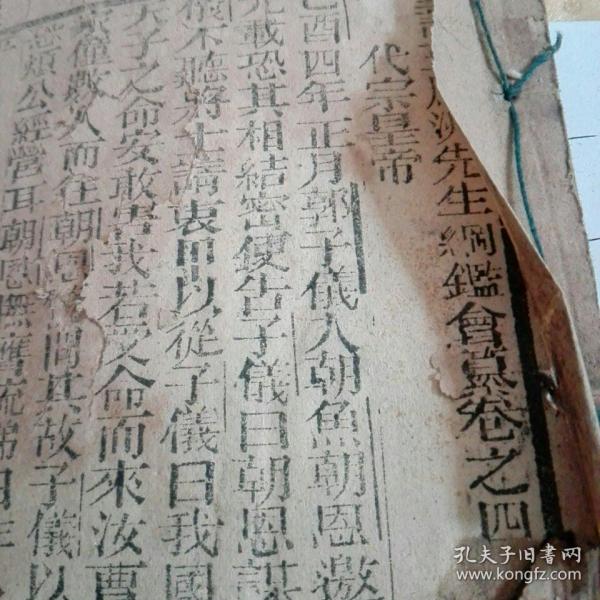 先生綱鑑會纂卷之四
代宗皇帝
酉四年正月郭子儀入朝魚朝恩邀
載恐其相結密使告子儀曰朝恩謀
儀不聽將士請衷甲以從子儀曰我國
天子之命安敢害我若受命而來汝曹
僮數人而往朝恩 間其故子儀以
煩公經營耳朝恩撫膺流涕曰
孔夫子旧书网
www.kongfz.com